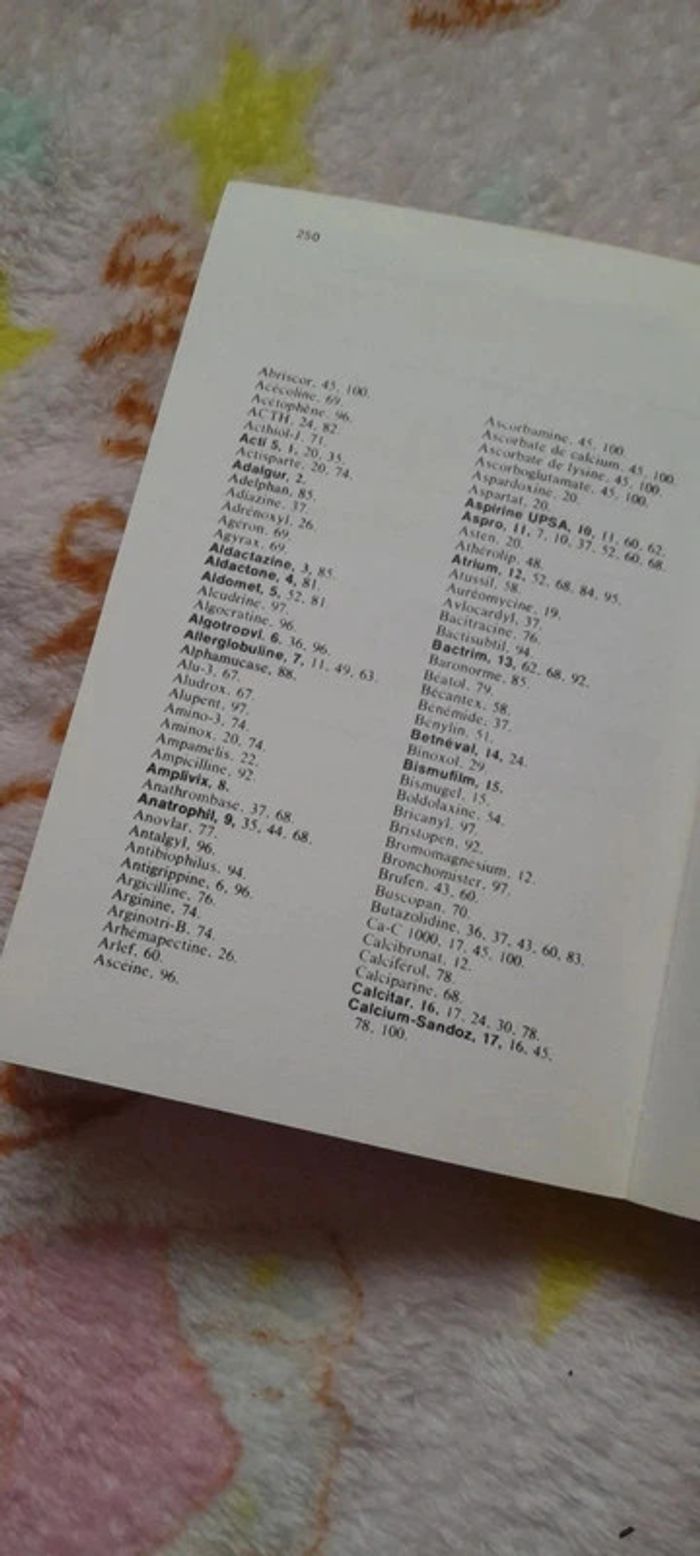 250
Abriscor, 45, 100.
Acécoline, 69.
Acétophène, 96.
ACTH, 24, 82.
Acthiol-J, 71.
Acti 5, 1, 20, 35.
Actisparte, 20, 74.
Adalgur, 2.
Adelphan, 85.
Adiazine, 37.
Adrénoxyl, 26.
Agéron, 69.
Agyrax, 69.
Aldactazine, 3, 85.
Aldactone, 4, 81.
Aldomet, 5, 52, 81.
Alcudrine, 97.
Algocratine, 96.
Algotroovi, 6, 36, 96.
Allerglobuline, 7, 11, 49, 63.
Alphamucase, 88.
Alu-3, 67.
Aludrox, 67.
Alupent, 97.
Amino-3, 74.
Aminox, 20, 74.
Ampamelis, 22.
Ampicilline, 92.
Amplivix, 8.
Anathrombase, 37, 68.
Anatrophil, 9, 35, 44, 68.
Anovlar, 77.
Antalgyl, 96.
Antibiophilus, 94.
Antigrippine, 6, 96.
Argicilline, 76.
Arginine, 74.
Arginotri-B, 74.
Arhémapectine, 26.
Arlef, 60.
Ascéine, 96.
Ascorbamine, 45, 100.
Ascorbate de calcium, 45, 100.
Ascorbate de lysine, 45, 100.
Ascorboglutamate, 45, 100.
Aspardoxine, 20.
Aspartat, 20.
Aspirine UPSA, 10, 11, 60, 62.
Aspro, 11, 7, 10, 37, 52, 60, 68.
Asten, 20.
Athérolip, 48.
Atrium, 12, 52, 68, 84, 95.
Atussil, 58.
Auréomycine, 19.
Avlocardyl, 37.
Bacitracine, 76.
Bactisubtil, 94.
Bactrim, 13, 62, 68, 92.
Baronorme, 85.
Béatol, 79.
Bécantex, 58.
Bénémide, 37.
Bénylin, 51.
Betnéval, 14, 24.
Binoxol, 29.
Bismufilm, 15.
Bismugel, 15.
Boldolaxine, 54.
Bricanyl, 97.
Bristopen, 92.
Bromomagnesium, 12.
Bronchomister, 97.
Brufen, 43, 60.
Buscopan, 70.
Butazolidine, 36, 37, 43, 60, 83.
Ca-C 1000, 17, 45, 100.
Calcibronat, 12.
Calciférol, 78.
Calciparine, 68.
Calcitar, 16, 17, 24, 30, 78.
Calcium-Sandoz, 17, 16, 45,
78, 100.